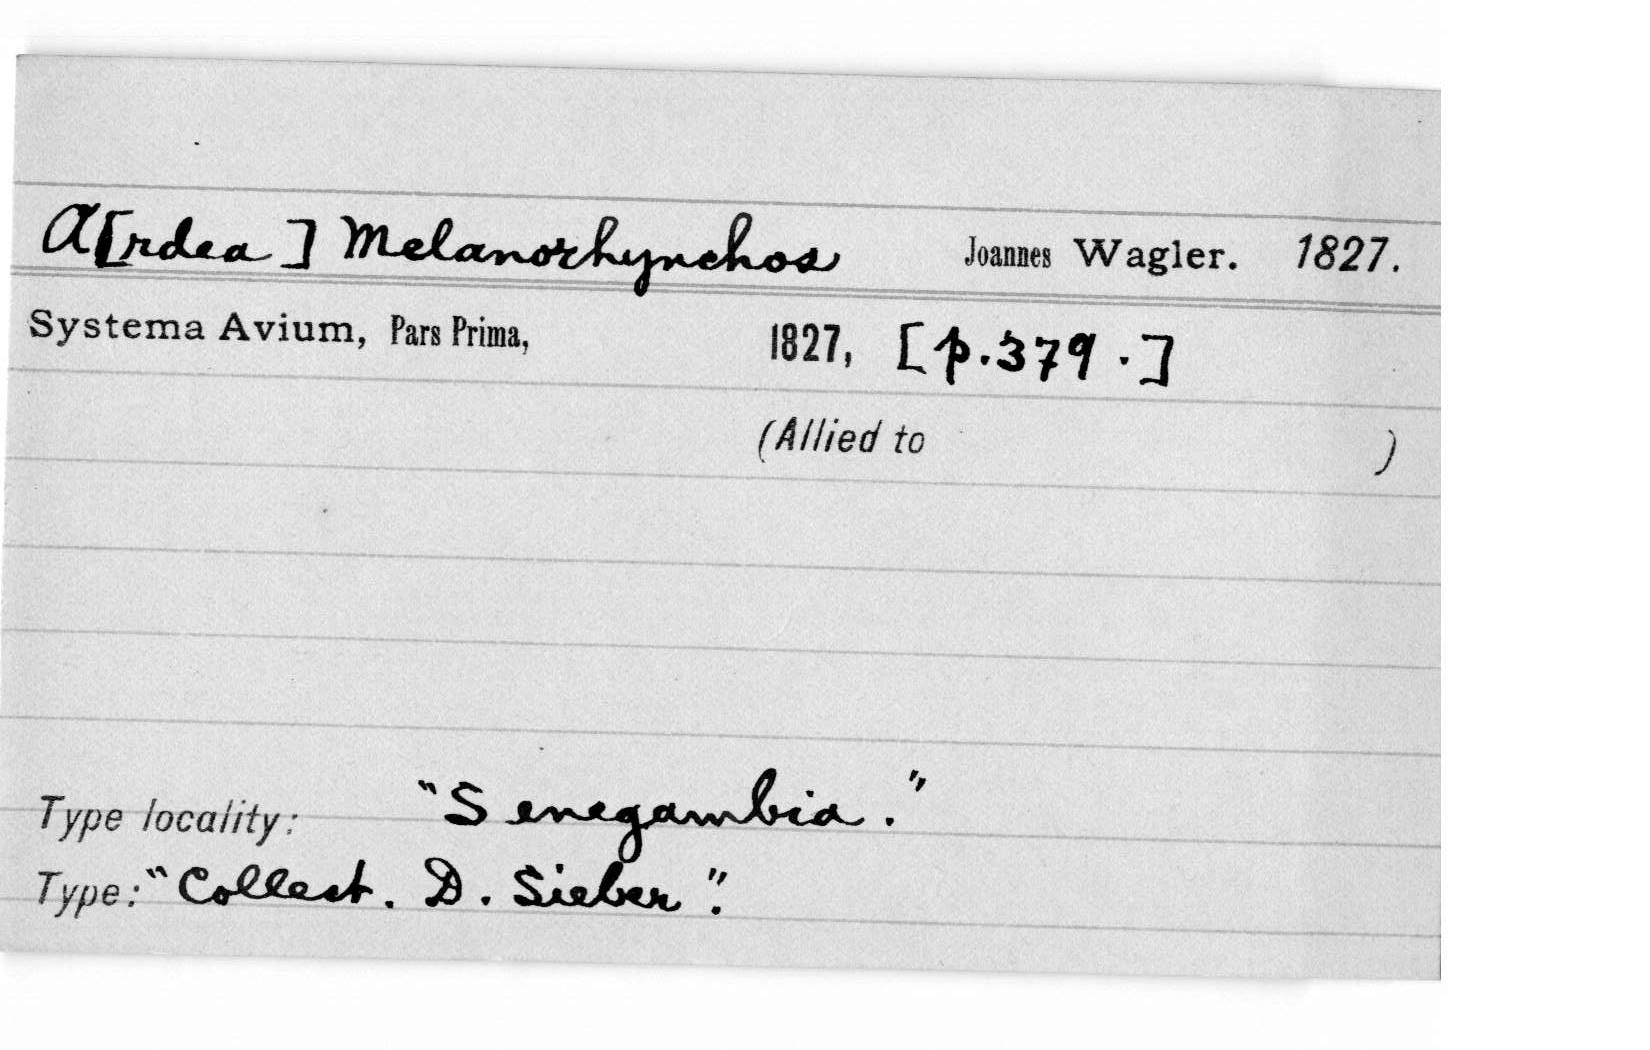 A[rdea] Melanorhynchos Joannes Wagler. 1827.
Systema Avium, Pars Prima, 1827, [p.379.]
(Allied to )
Type locality: "Senegambia."
Type: "Collect. D. Sieber".